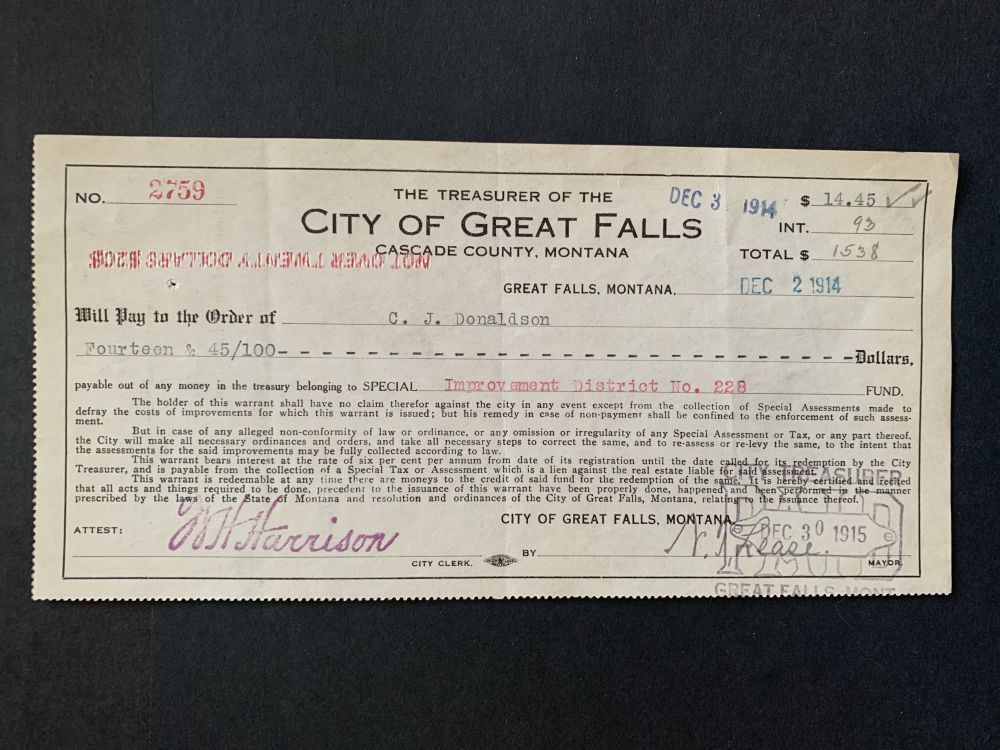 NO. 2759
THE TREASURER OF THE
CITY OF GREAT FALLS
CASCADE COUNTY, MONTANA
DEC 3 1914
$ 14.45
INT. 93
TOTAL $ 1538
NOT OVER TWENTY DOLLARS $20$
GREAT FALLS, MONTANA, DEC 2 1914
Will Pay to the Order of C. J. Donaldson
Fourteen & 45/100- - - - - - - - - - - - - - - - - - - - - - - - - - -Dollars,
payable out of any money in the treasury belonging to SPECIAL Improvement District No. 228 FUND.
The holder of this warrant shall have no claim therefor against the city in any event except from the collection of Special Assessments made to
defray the costs of improvements for which this warrant is issued; but his remedy in case of non-payment shall be confined to the enforcement of such assess-
ment.
But in case of any alleged non-conformity of law or ordinance, or any omission or irregularity of any Special Assessment or Tax, or any part thereof,
the City will make all necessary ordinances and orders, and take all necessary steps to correct the same, and to re-assess or re-levy the same, to the intent that
the assessments for the said improvements may be fully collected according to law.
This warrant bears interest at the rate of six per cent per annum from date of its registration until the date called for its redemption by the City
Treasurer, and is payable from the collection of a Special Tax or Assessment which is a lien against the real estate liable for said assessment.
This warrant is redeemable at any time there are moneys to the credit of said fund for the redemption of the same. It is hereby certified and recited
that all acts and things required to be done, precedent to the issuance of this warrant have been properly done, happened and been performed in the manner
prescribed by the laws of the State of Montana and resolution and ordinances of the City of Great Falls, Montana, relating to the issuance thereof.
CITY OF GREAT FALLS, MONTANA
ATTEST: W H Harrison
CITY CLERK.
BY
MAYOR
TREASURER
PAID
DEC 30 1915
GREAT FALLS, MONT.